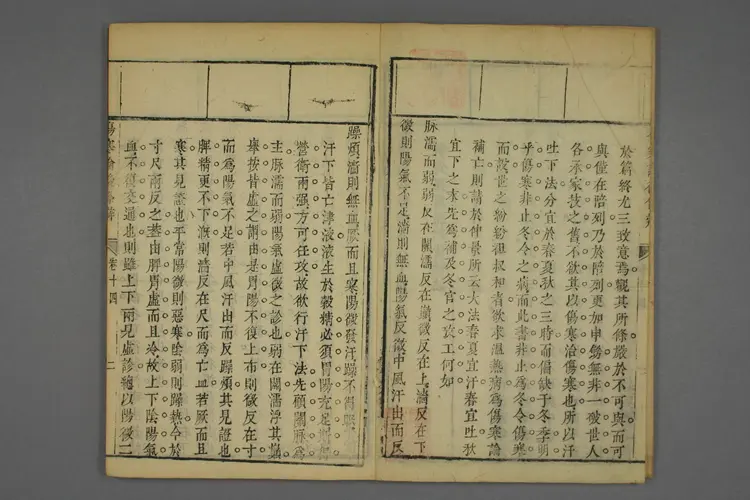 於篇終尤三致意焉觀其所條嚴於不可與而可
與僅在陪列乃於陪列更加申勞無非一破世人
各承家技之舊不欲其以傷寒治傷寒也所以汗
吐下法分宜於春夏秋之三時而偏缺于冬季明
乎傷寒非止冬令之病而此書非止為冬令傷寒
而設世之紛紛祖叔和者欲求溫熱病為傷寒論
補亡則請於仲景所云大法春夏宜汗春宜吐秋
宜下之末先為補及冬官之攻工何如
脉濡而弱弱反在關濡反在巔微反在上濇反在下
微則陽氣不足濇則無血陽氣反微中風汗出而反
躁煩濇則無血厥而且寒陽微發汗躁不得眠
汗下皆亡津液液生於穀精必須胃陽充足
營衛兩強方可任攻故欲行汗下法先顧關脉為
主脉濡而弱陽氣虛微之診也弱在關濡浮其巔
舉按皆虛之謂由是胃陽不復上布則微反在寸
而為陽氣不足若中風汗出而反躁煩其見證也
脾精更不下溉則濇反在尺而為亡血若厥而且
寒其見證也平常陽微則惡寒陰弱則躁熱今於
寸尺兩反之者由脾胃虛而且冷故上下陰陽氣
血不復交通也則雖上下兩見虛診總以陽微二
卷十四
二